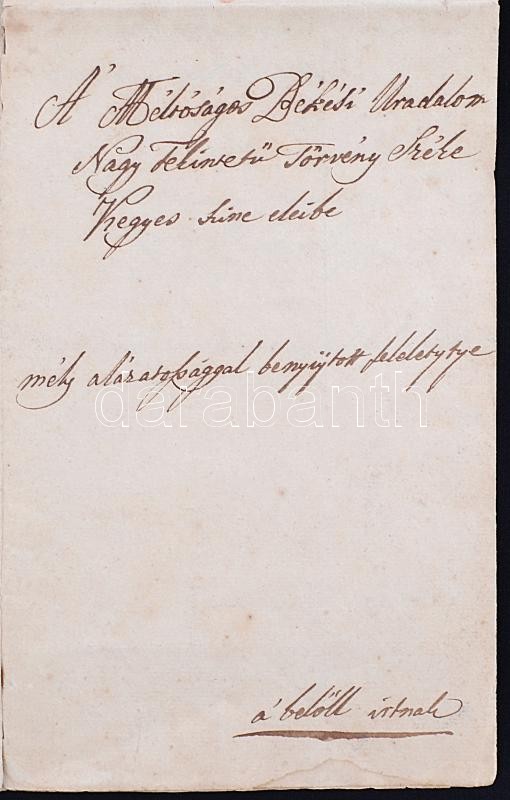 A' Méltóságos Békési Uradalom
Nagy Tekintetű Törvény Széke
Kegyes Szine eleibe
mély alázatossággal benyújtott feleletytye
darabanth
á belőll irtnak